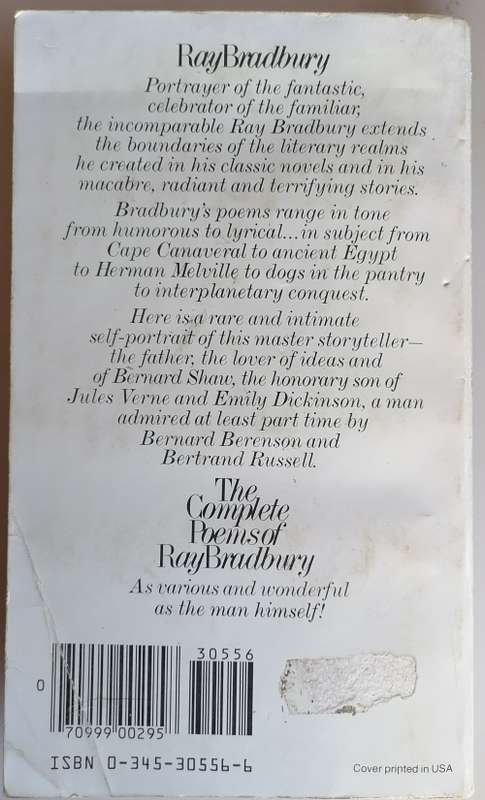 RayBradbury
Portrayer of the fantastic,
celebrator of the familiar,
the incomparable Ray Bradbury extends
the boundaries of the literary realms
he created in his classic novels and in his
macabre, radiant and terrifying stories.
Bradbury's poems range in tone
from humorous to lyrical...in subject from
Cape Canaveral to ancient Egypt
to Herman Melville to dogs in the pantry
to interplanetary conquest.
Here is a rare and intimate
self-portrait of this master storyteller—
the father, the lover of ideas and
of Bernard Shaw, the honorary son of
Jules Verne and Emily Dickinson, a man
admired at least part time by
Bernard Berenson and
Bertrand Russell.
The
Complete
Poems of
RayBradbury
As various and wonderful
as the man himself!
30556
0
70999 00295
ISBN 0-345-30556-6
Cover printed in USA